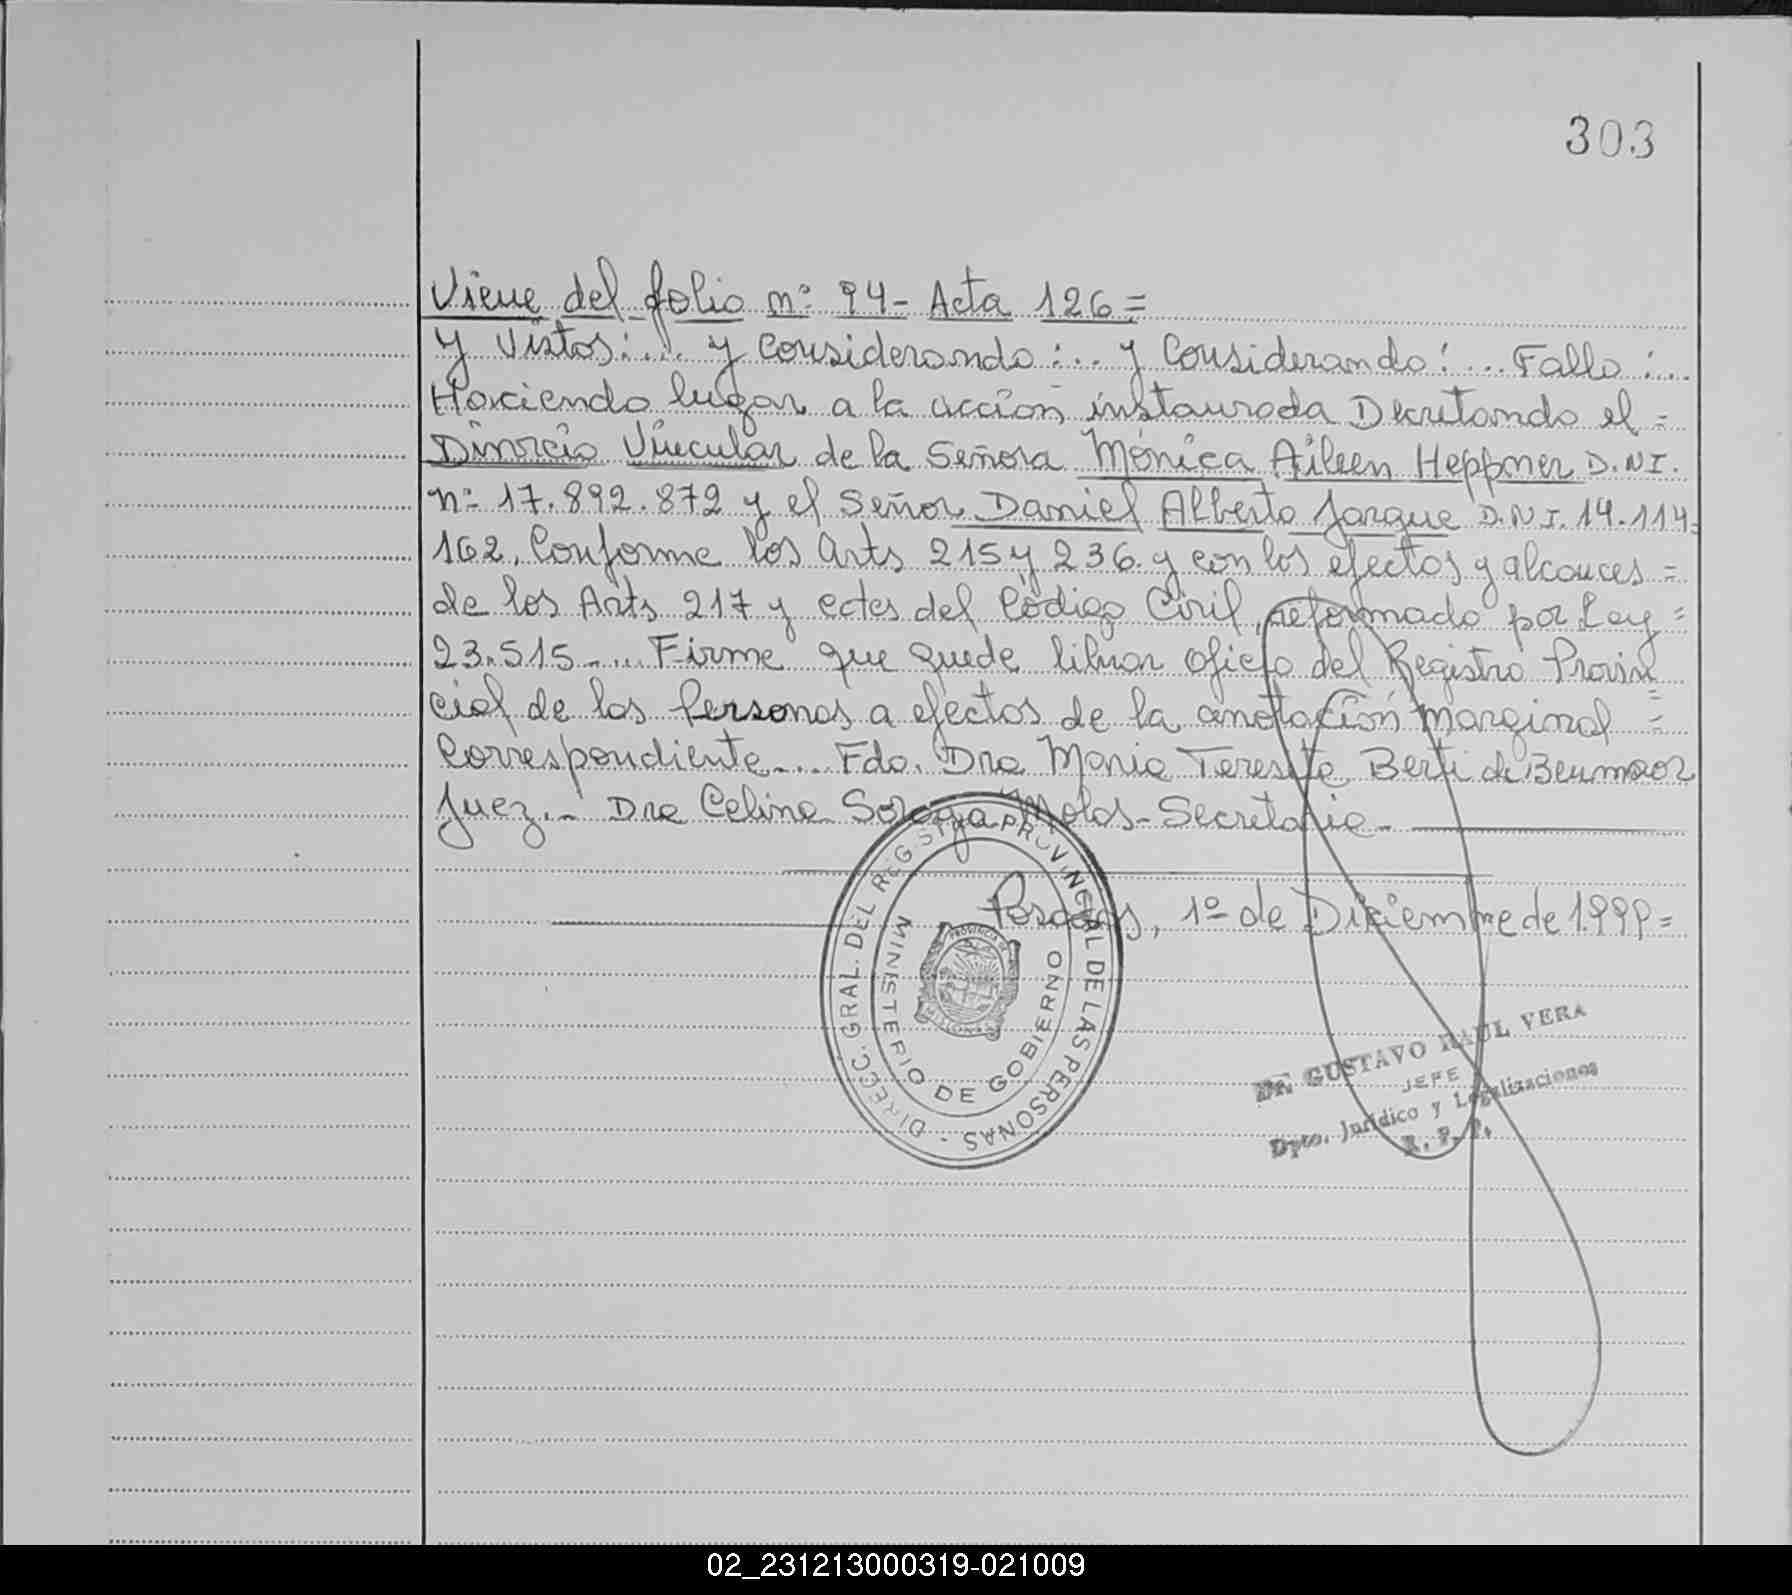 303
Viene del folio nº 94- Acta 126=
Y Vistos:... y Considerando:... y Considerando:... Fallo:...
Haciendo lugar a la acción instaurada Decretando el=
Divorcio Vincular de la Señora Mónica Aileen Heppner D.N.I.
nº 17.892.872 y el Señor Daniel Alberto Jarque D.N.I. 14.114-
162, Conforme los Arts 215 y 236 y con los efectos y alcances=
de los Arts 217 y cctes del Código Civil, reformado por Ley=
23.515-... Firme que quede librar oficio del Registro Provin
cial de las Personas a efectos de la anotación marginal=
Correspondiente-... Fdo. Dra Maria Teresita Berti de
Juez.- Dra Celina Molas- Secretaria-
Posadas, 1º de Diciembre de 1.999=
DIRECC. GRAL. DEL REGISTRO PROVINCIAL DE LAS PERSONAS -
MINISTERIO DE GOBIERNO
PROVINCIA DE
MISIONES
Dr. GUSTAVO RAUL VERA
JEFE
Dpto. Jurídico y Legalizaciones
R. P. P.
02_231213000319-021009